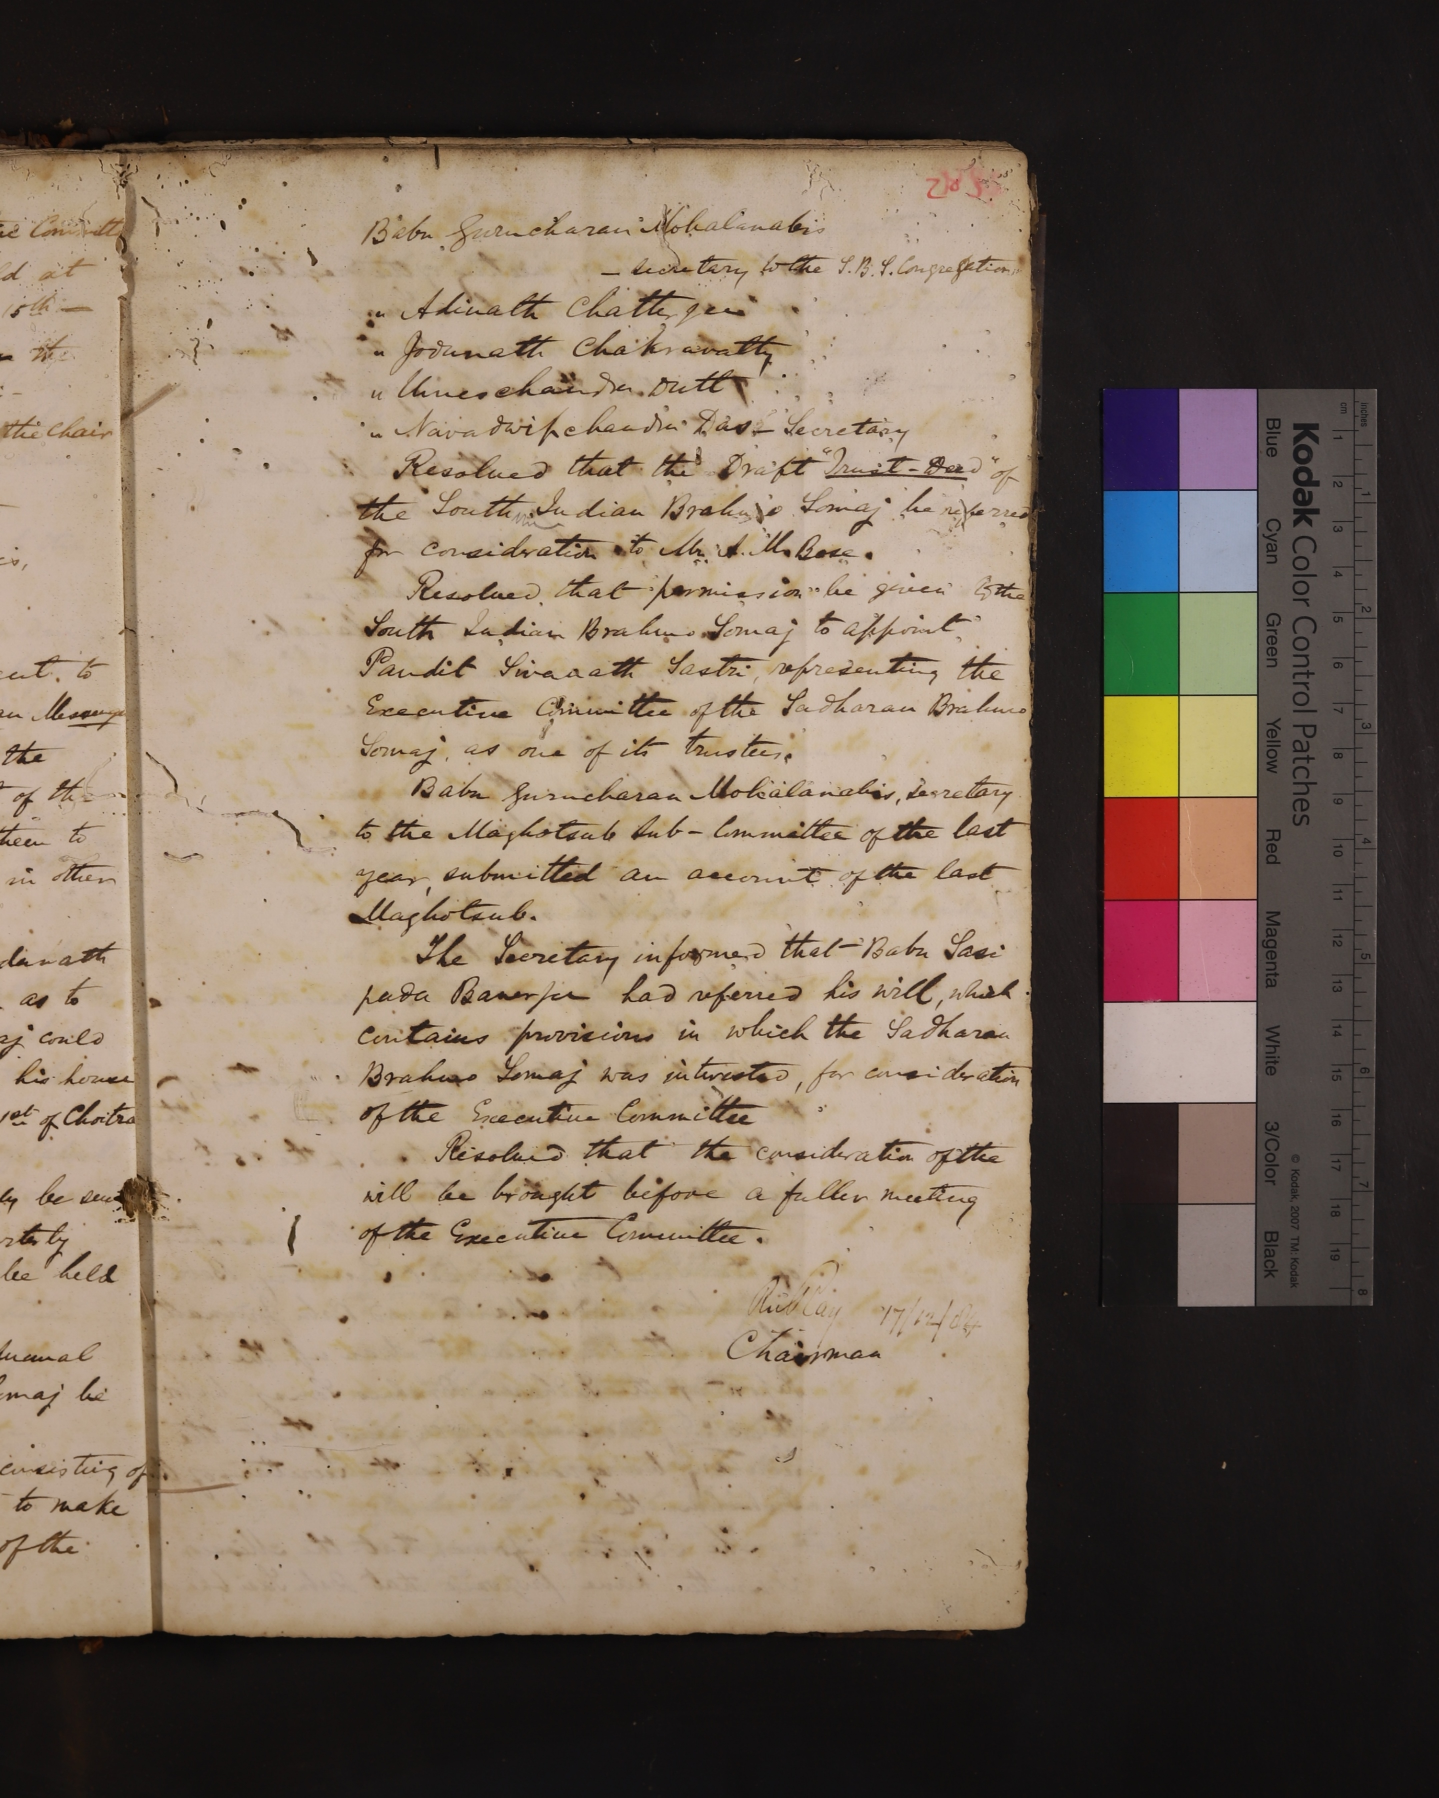 ld at
15th —
the Chair
ent. to
the
of the
them to
in other
as to
aj could
his house
1st of Choitra
be held
omaj be
consisting of
to make
of the
Babu Gurucharan Mohalanabis
— secretary to the S.B.S. Congregation
" Adinath Chatterjee
" Jodunath Chakravatty
" Umeschandra Dutt
" Navadwipchandra Das — Secretary
Resolved that the Draft "Trust-Deed" of
the South Indian Brahmo Somaj be referred
for consideration to Mr. A. M. Bose.
Resolved that permission be given to the
South Indian Brahmo Somaj to appoint
Pandit Sivanath Sastri, representing the
Executive Committee of the Sadharan Brahmo
Somaj, as one of its trustees.
Babu Gurucharan Mohalanabis, secretary
to the Maghotsub Sub-Committee of the last
year, submitted an account of the last
Maghotsub.
The Secretary informed that Babu Sasi
pada Banerjee had referred his will, which
contains provisions in which the Sadharan
Brahmo Somaj was interested, for consideration
of the Executive Committee
Resolved that the consideration of the
will be brought before a fuller meeting
of the Executive Committee.
17/12/84
Chairman
Kodak Color Control Patches
Blue Cyan Green Yellow Red Magenta White 3/Color Black
© Kodak, 2007 TM: Kodak
inches 1 2 3 4 5 6 7 8
cm 1 2 3 4 5 6 7 8 9 10 11 12 13 14 15 16 17 18 19